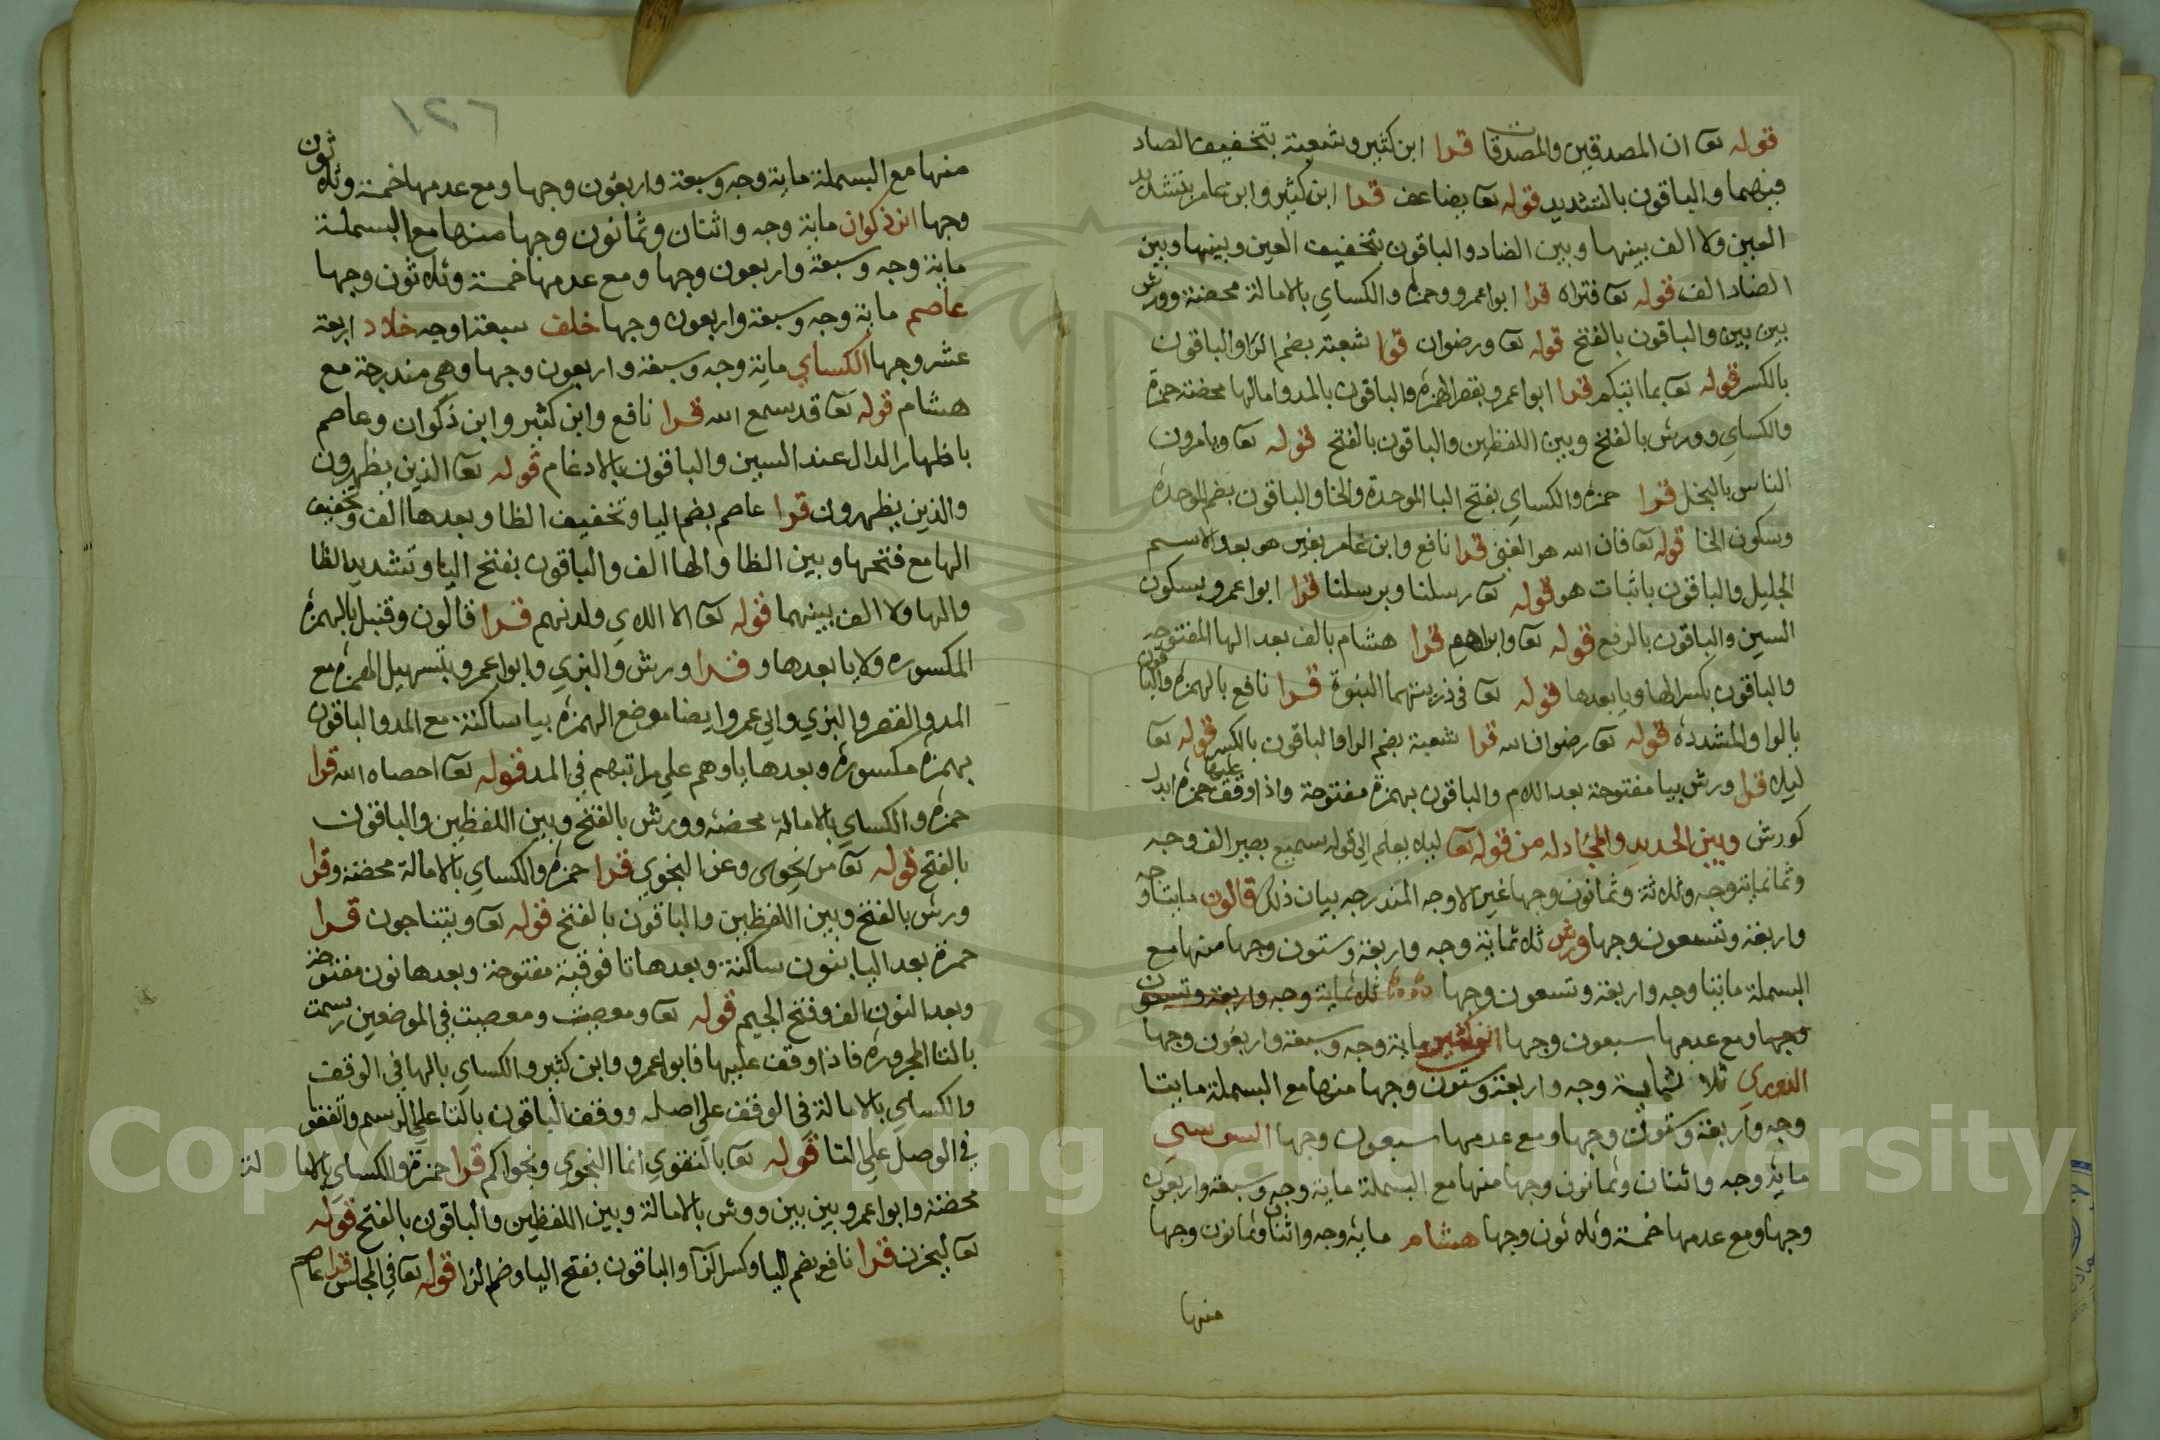 قوله تعا ان المصدقين والمصدقات قرا ابن كثير وشعبة بتخفيف الصاد
فيهما والباقون بالتشديد قوله تعا يضاعف قرا ابن كثير وابن عامر بتشديد
العين ولا الف بينها وبين الضاد والباقون بتخفيف العين وبينها وبين
الضاد الف قوله تعا فتراه قرا ابو عمرو وحمزة والكساي بالامالة محضة وورش
بين بين والباقون بالفتح قوله تعا ورضوان قرا شعبة بضم الرا والباقون
بالكسر قوله تعا بما اتيكم قرا ابو عمرو بقصر الهمزة والباقون بالمد وامالها محضة حمزة
والكساي وورش بالفتح وبين اللفظين والباقون بالفتح قوله تعا ويامرون
الناس بالبخل قرا حمزة والكساي بفتح البا الموحدة والخا والباقون بضم الموحدة
وسكون الخا قوله تعا فان الله هو الغنى قرا نافع وابن عامر بغير هو بعد الاسم
الجليل والباقون باثبات هو قوله تعا رسلنا وبرسلنا قرا ابو عمرو بسكون
السين والباقون بالرفع قوله تعا وابراهيم قرا هشام بالف بعد الها المفتوحه
والباقون بكسر الها ويا بعدها قوله تعا فى ذريتهما النبوة قرا نافع بالهمزة والباقون
بالواو المشدده قوله تعا رضوان الله قرا شعبة بضم الرا والباقون بالكسر قوله تعا
ليلا قرا ورش بيا مفتوحة بعد اللام والباقون بهمزة مفتوحة واذا وقف عليها حمزة ابدل
كورش وبين الحديد والمجادله من قوله تعا ليلا يعلم الى قوله سميع بصير الف وجه
وثمانماية وجه وثلاثة وثمانون وجها غير الاوجه المندرجه بيان ذلك قالون مايتا وجه
واربعة وتسعون وجها ورش ثلاثماية وجه واربعة وستون وجها منها مع
البسملة مايتا وجه واربعة وتسعون وجها ثلاثماية وجه واربعة وتسعون
وجها ومع عدمها سبعون وجها ابن كثير ماية وجه وسبعة واربعون وجها
الدوري ثلاثماية وجه واربعة وستون وجها منها مع البسملة مايتا
وجه واربعة وستون وجها ومع عدمها سبعون وجها السوسي
ماية وجه واثنان وثمانون وجها منها مع البسملة ماية وجه وسبعة واربعون
وجها ومع عدمها خمسة وثلاثون وجها هشام ماية وجه واثنان وثمانون وجها
منها
منها مع البسملة ماية وجه وسبعة واربعون وجها ومع عدمها خمسة وثلاثون
وجها ابن ذكوان ماية وجه واثنان وثمانون وجها منها مع البسملة
ماية وجه وسبعة واربعون وجها ومع عدمها خمسة وثلاثون وجها
عاصم ماية وجه وسبعة واربعون وجها خلف سبعة اوجه خلاد اربعة
عشر وجها الكساي ماية وجه وسبعة واربعون وجها وهي مندرجة مع
هشام قوله تعا قد سمع الله قرا نافع وابن كثير وابن ذكوان وعاصم
باظهار الدال عند السين والباقون بالادغام قوله تعا الذين يظهرون
والذين يظهرون قرا عاصم بضم اليا وتخفيف الظا وبعدها الف وتخفيف
الها مع فتحها وبين الظا والها الف والباقون بفتح اليا وتشديد الظا
والها ولا الف بينهما قوله تعا الا اللاي ولدنهم قرا قالون وقنبل بالهمزة
المكسوره ولا يا بعدها و قرا ورش والبزي وابو عمرو بتسهيل الهمزة مع
المد والقصر والبزي وابي عمرو ايضا موضع الهمزة بيا ساكنة مع المد والباقون
بهمزة مكسورة وبعدها يا وهم علي مراتبهم في المد قوله تعا احصاه الله قرا
حمزة والكساي بالامالة محضه وورش بالفتح وبين اللفظين والباقون
بالفتح قوله تعا من نجوى وعن النجوي قرا حمزة والكساي بالامالة محضة وقرا
ورش بالفتح وبين اللفظين والباقون بالفتح قوله تعا ويتناجون قرا
حمزة بعد اليا بنون ساكنة وبعدها تا فوقية مفتوحة وبعدها نون مفتوحة
وبعد النون الف وفتح الجيم قوله تعا ومعصيت ومعصيت في الموضعين رسمت
بالتا المجروره فاذا وقف عليها فابو عمرو وابن كثير والكساي بالها في الوقف
والكساي بالامالة في الوقف علي اصله ووقف الباقون بالتا علي الرسم واتفقوا
في الوصل علي التا قوله تعا بالتقوي انما النجوي ونجواكم قرا حمزة والكساي بالامالة
محضة وابو عمرو بين بين وورش بالامالة وبين اللفظين والباقون بالفتح قوله
تعا ليحزن قرا نافع بضم اليا وكسر الزا والباقون بفتح اليا وضم الزا قوله تعا في المجلس قرا عاصم
Copyright © King Saud University